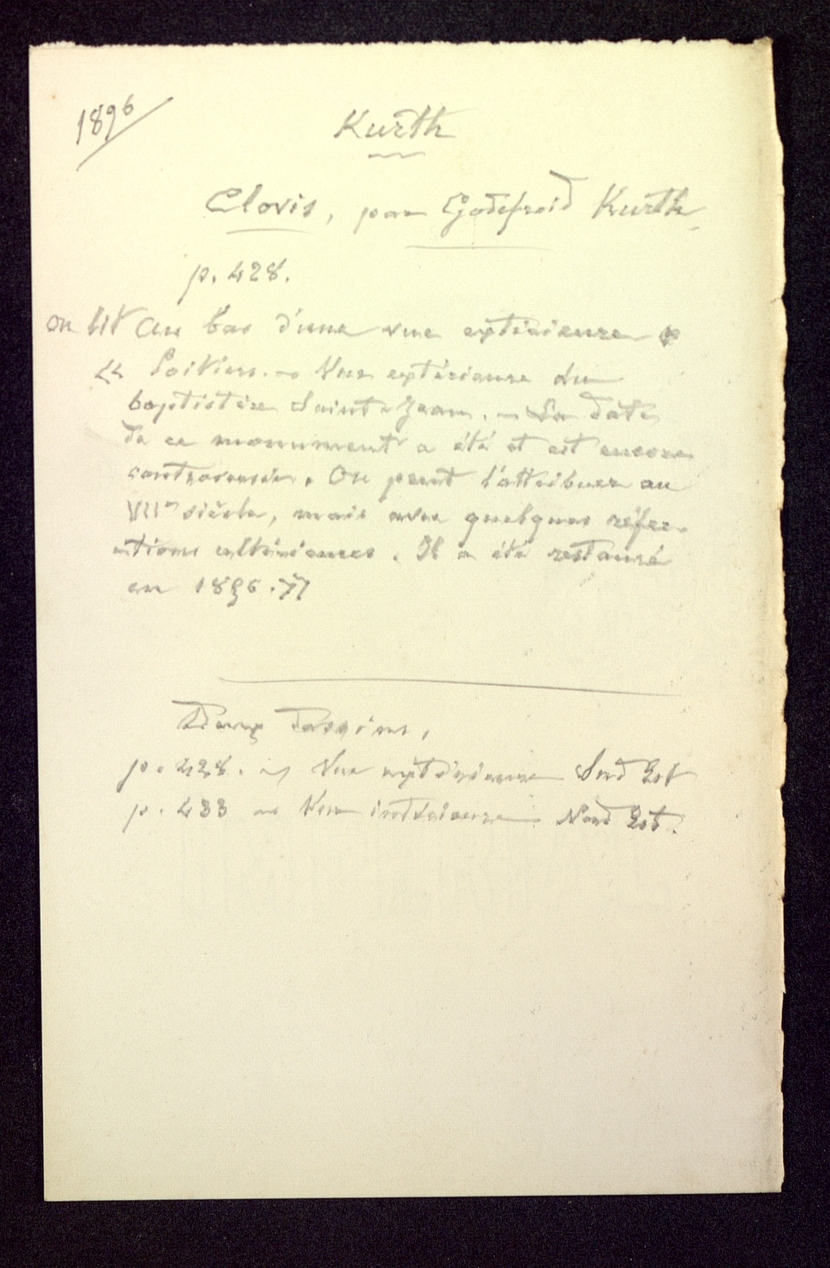 1896
Kurth
Clovis, par Godefroid Kurth
p. 428.
on lit au bas d'une vue extérieure
« Poitiers. — Vue extérieure du
baptistère Saint-Jean. — La date
de ce monument a été et est encore
controversée. On peut l'attribuer au
VIIe siècle, mais avec quelques réfec-
tions ultérieures. Il a été restauré
en 1896. »
Deux dessins,
p. 428. — Vue extérieure Sud Est
p. 433 — Vue intérieure Nord Est.